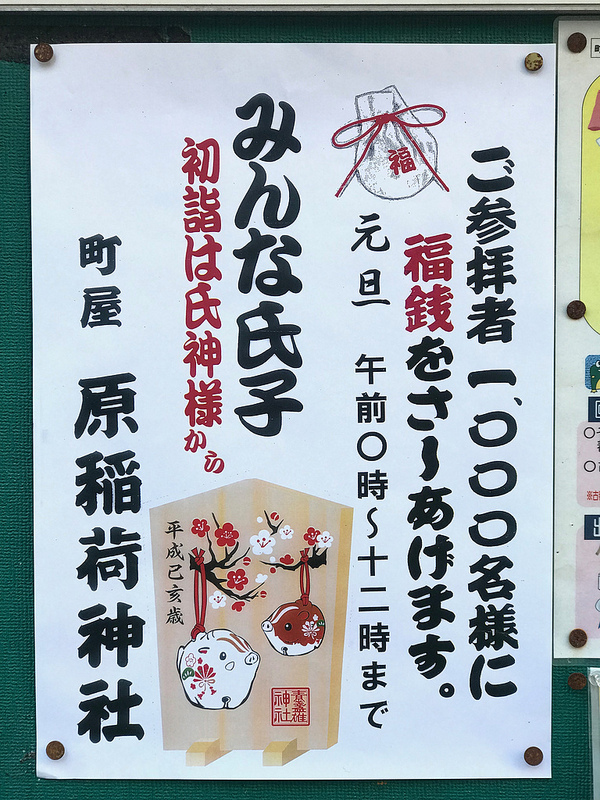 ご参拝者 一、〇〇〇名様に
福銭をさしあげます。
福
元旦 午前〇時～十二時まで
みんな氏子
初詣は氏神様から
町屋 原稲荷神社
平成己亥歳
神社